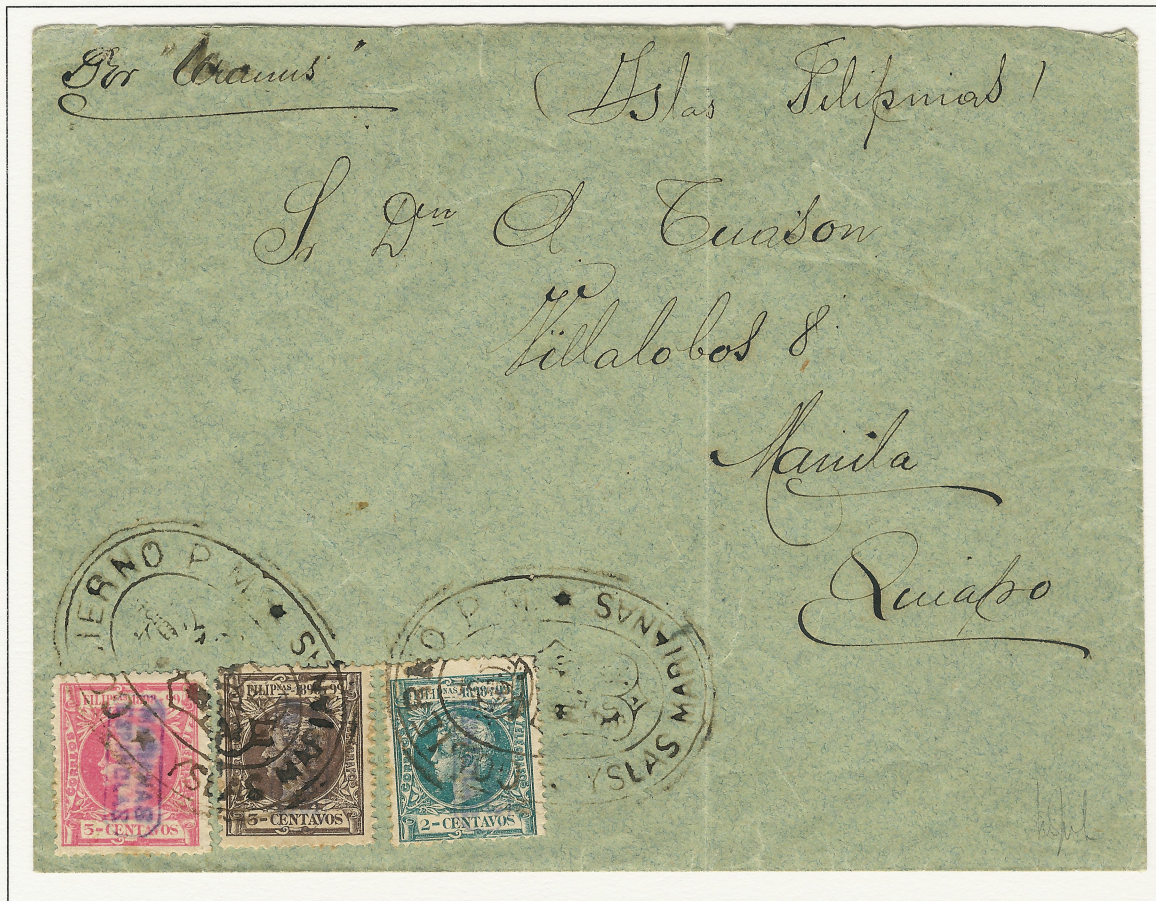 Por "Uranus"
(Yslas Filipinas)
Sr Dn A Tuason
Villalobos 8
Manila
Quiapo
GOBIERNO P. M. ★ YSLAS MARIANAS
GOBIERNO P. M. ★ YSLAS MARIANAS
FILIPNAS 1898 y 99
MARIANAS
ESPAÑOLAS
5-CENTAVOS
FILIPNAS 1898 y 99
CENTAVOS
FILIPNAS 1898 y 99
2-CENTAVOS